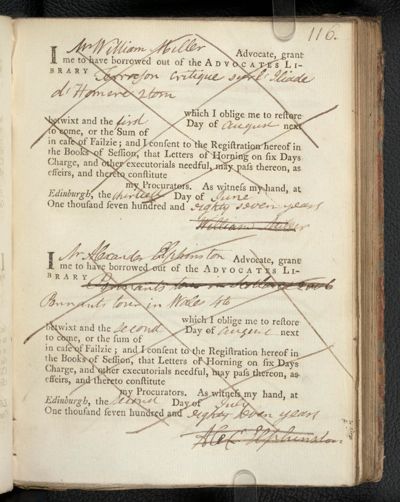 116.
I Mr William Miller Advocate, grant
me to have borrowed out of the ADVOCATES LI-
BRARY Terrason critique sur l'Iliade
d'Homere 2 tom
which I oblige me to restore
betwixt and the first Day of August next
to come, or the Sum of
in case of Failzie; and I consent to the Registration hereof in
the Books of Session, that Letters of Horning on six Days
Charge, and other executorials needful, may pass thereon, as
effeirs, and thereto constitute
my Procurators. As witness my hand, at
Edinburgh, the thirtieth Day of June
One thousand seven hundred and eighty seven years
William Miller
I Mr Alexander Elphinston Advocate, grant
me to have borrowed out of the ADVOCATES LI-
BRARY Pennants tour in Scotland
Pennants tour in Wales
which I oblige me to restore
betwixt and the second Day of August next
to come, or the sum of
in case of Failzie; and I consent to the Registration hereof in
the Books of Session, that Letters of Horning on six Days
Charge, and other executorials needful, may pass thereon, as
effeirs, and thereto constitute
my Procurators. As witness my hand, at
Edinburgh, the second Day of July
One thousand seven hundred and eighty seven years
Alex Elphinston